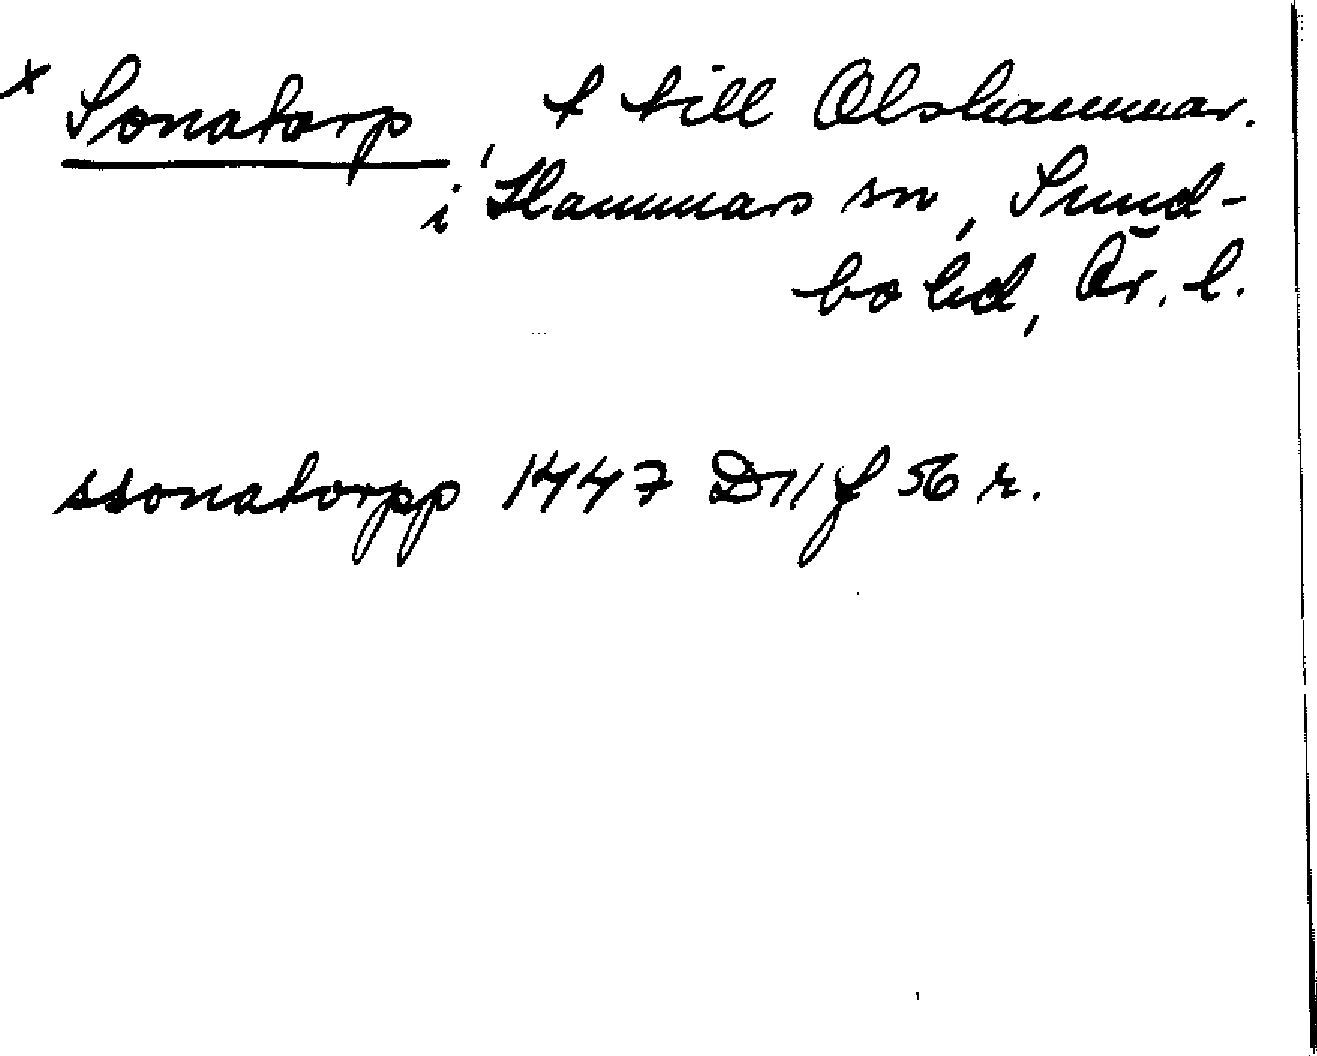 x Sonatorp, t till Olshammar.
i Hammars sn, Sund-
bo hd, Ör. l.
ssonatorpp 1447 D11 f 56 r.